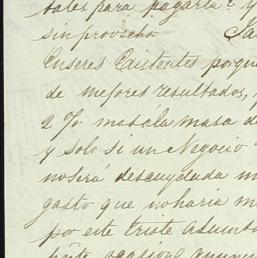 tales para pagarla è y
sin provecho
Enseres Existentes porque
de mejores resultados,
2 % mas á la masa d
y solo si un Negocio
no será descuydada m
gasto que no haria m
por este triste asunto
ocasione